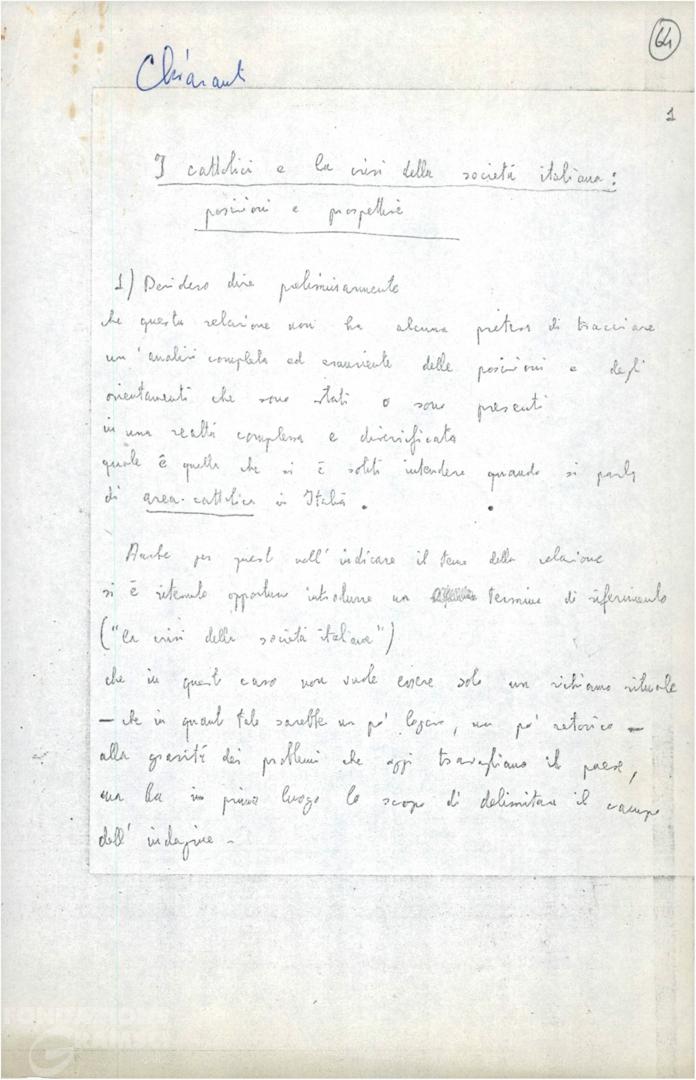 64
Chiaranti
1
I cattolici e la crisi della società italiana:
posizioni e prospettive
1) Desidero dire preliminarmente
che questa relazione non ha alcuna pretesa di tracciare
un'analisi completa ed esauriente delle posizioni e degli
orientamenti che sono stati o sono presenti
in una realtà complessa e diversificata
quale è quella che si è soliti intendere quando si parla
di area cattolica in Italia.
Anche per questo nell'indicare il tema della relazione
si è ritenuto opportuno introdurre un termine di riferimento
("la crisi della società italiana")
che in questo caso non vuole essere solo un richiamo rituale
— che in quanto tale sarebbe un po' logoro, un po' retorico —
alla gravità dei problemi che oggi travagliano il paese,
ma ha in primo luogo lo scopo di delimitare il campo
dell'indagine -